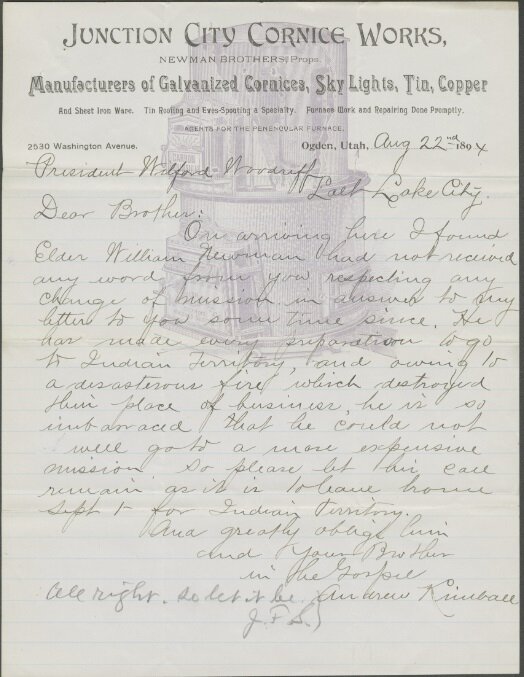 JUNCTION CITY CORNICE WORKS,
NEWMAN BROTHERS, Props.
Manufacturers of Galvanized Cornices, Sky Lights, Tin, Copper
And Sheet Iron Ware. Tin Roofing and Eves-Spouting a Specialty. Furnace Work and Repairing Done Promptly.
AGENTS FOR THE PENENCULAR FURNACE.
2530 Washington Avenue. Ogden, Utah, Aug 22nd 1894
President Wilford Woodruff
Salt Lake City.
Dear Brother:
On arriving here I found
Elder William Newman had not received
any word from you respecting any
change of mission in answer to my
letter to you some time since. He
has made every preparation to go
to Indian Territory, and owing to
a disasterous fire which destroyed
their place of business, he is so
imbarraced that he could not
well go to a more expensive
mission so please let his call
remain as it is to leave home
Sept 1 for Indian Territory.
And greatly oblige him
and Your Brother
in the Gospel
Andrew Kimball
All right. so let it be.
J. F. S.